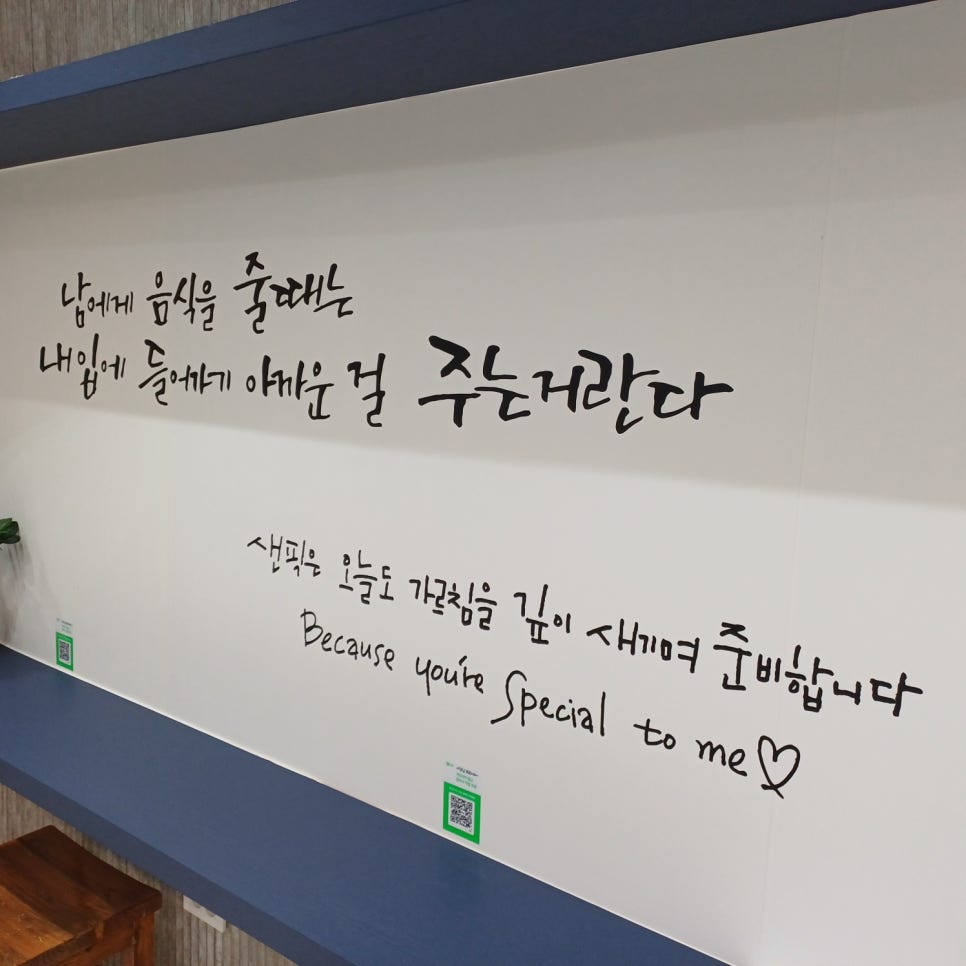 남에게 음식을 줄때는
내입에 들어가기 아까운 걸 주는거란다
샌픽은 오늘도 가르침을 깊이 새기며 준비합니다
Because you're Special to me♡